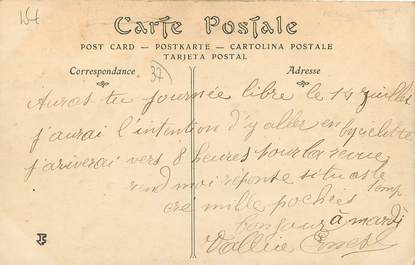 15f
Carte Postale
POST CARD — POSTKARTE — CARTOLINA POSTALE
TARJETA POSTAL
Correspondance
37
Adresse
Auras tu journée libre le 14 juillet
j'aurai l'intention d'y aller en byciclette
j'ariverai vers 8 heures pour la revue
rend moi réponse si tu as le temp
cré mille pochées
bonjour à mardi
Vallier Ernest